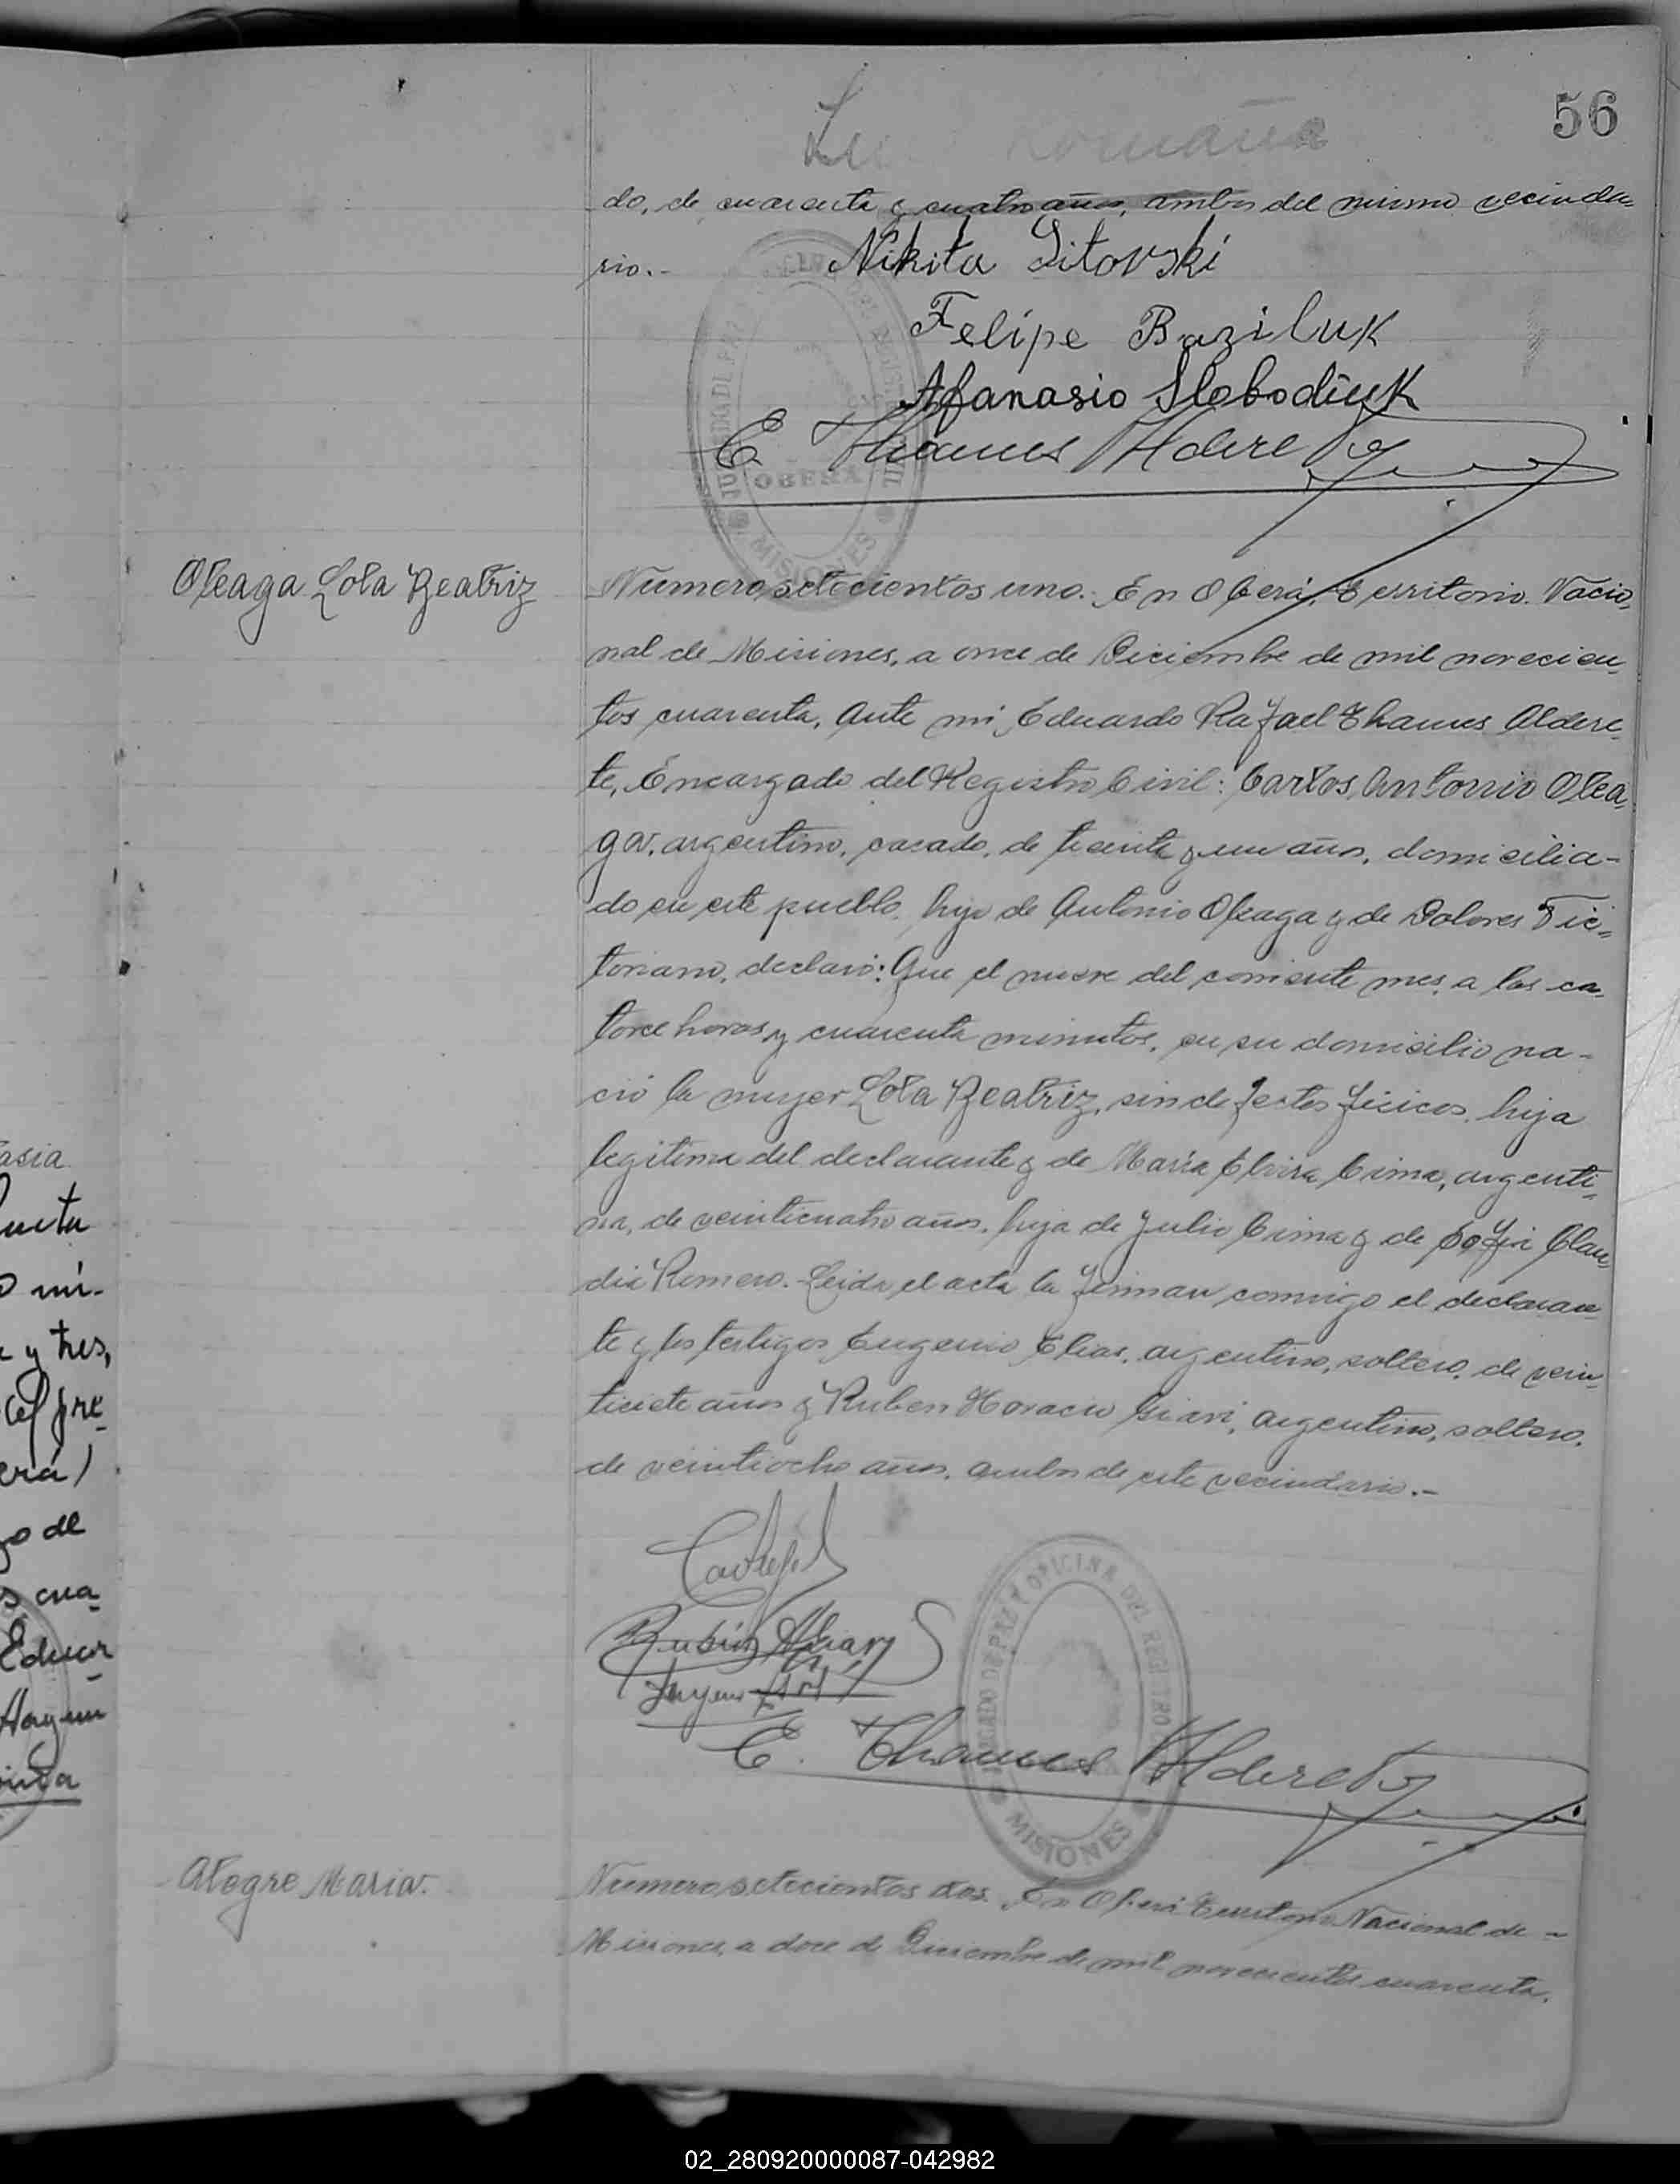 56
do, de cuarenta y cuatro años, ambos del mismo vecinda=
rio.-
Nikita Litovski
Felipe Baziluk
Afanasio Slobodiuk
E Thames Alderete
OBERA
MISIONES
Oleaga Lola Beatriz
Numero setecientos uno. En Oberá, Territorio Nacio,
nal de Misiones, a once de Diciembre de mil novecien,
tos cuarenta, ante mi Eduardo Rafael Thames Aldere,
te, Encargado del Registro Civil: Carlos Antonio Olea,
ga, argentino, casado, de treinta y un años, domicilia-
do en este pueblo, hijo de Antonio Oleaga y de Dolores Vic=
toriano, declaró: Que el nueve del corriente mes, a las ca,
torce horas y cuarenta minutos, en su domicilio na-
ció la mujer Lola Beatriz, sin defectos físicos, hija
legitima del declarante y de María Elvira Cima, argenti,
na, de veinticuatro años, hija de Julio Cima y de Sofia Clau,
dia Romero. Leida el acta la firman conmigo el declaran
te y los testigos Eugenio Elias, argentino, soltero, de vein,
tisiete años y Ruben Horacio, argentino, soltero,
de veintiocho años, ambos de este vecindario.-
JUZGADO DE PAZ Y OFICINA DEL REGISTRO
E. Thames Alderete
MISIONES
Alegre Maria.
Numero setecientos dos. En Oberá Territorio Nacional de -
Misiones, a doce de Diciembre de mil novecientos cuarenta,
asia
mi-
y tres,
pre
erá)
go de
s cua
Eduar
02_280920000087-042982